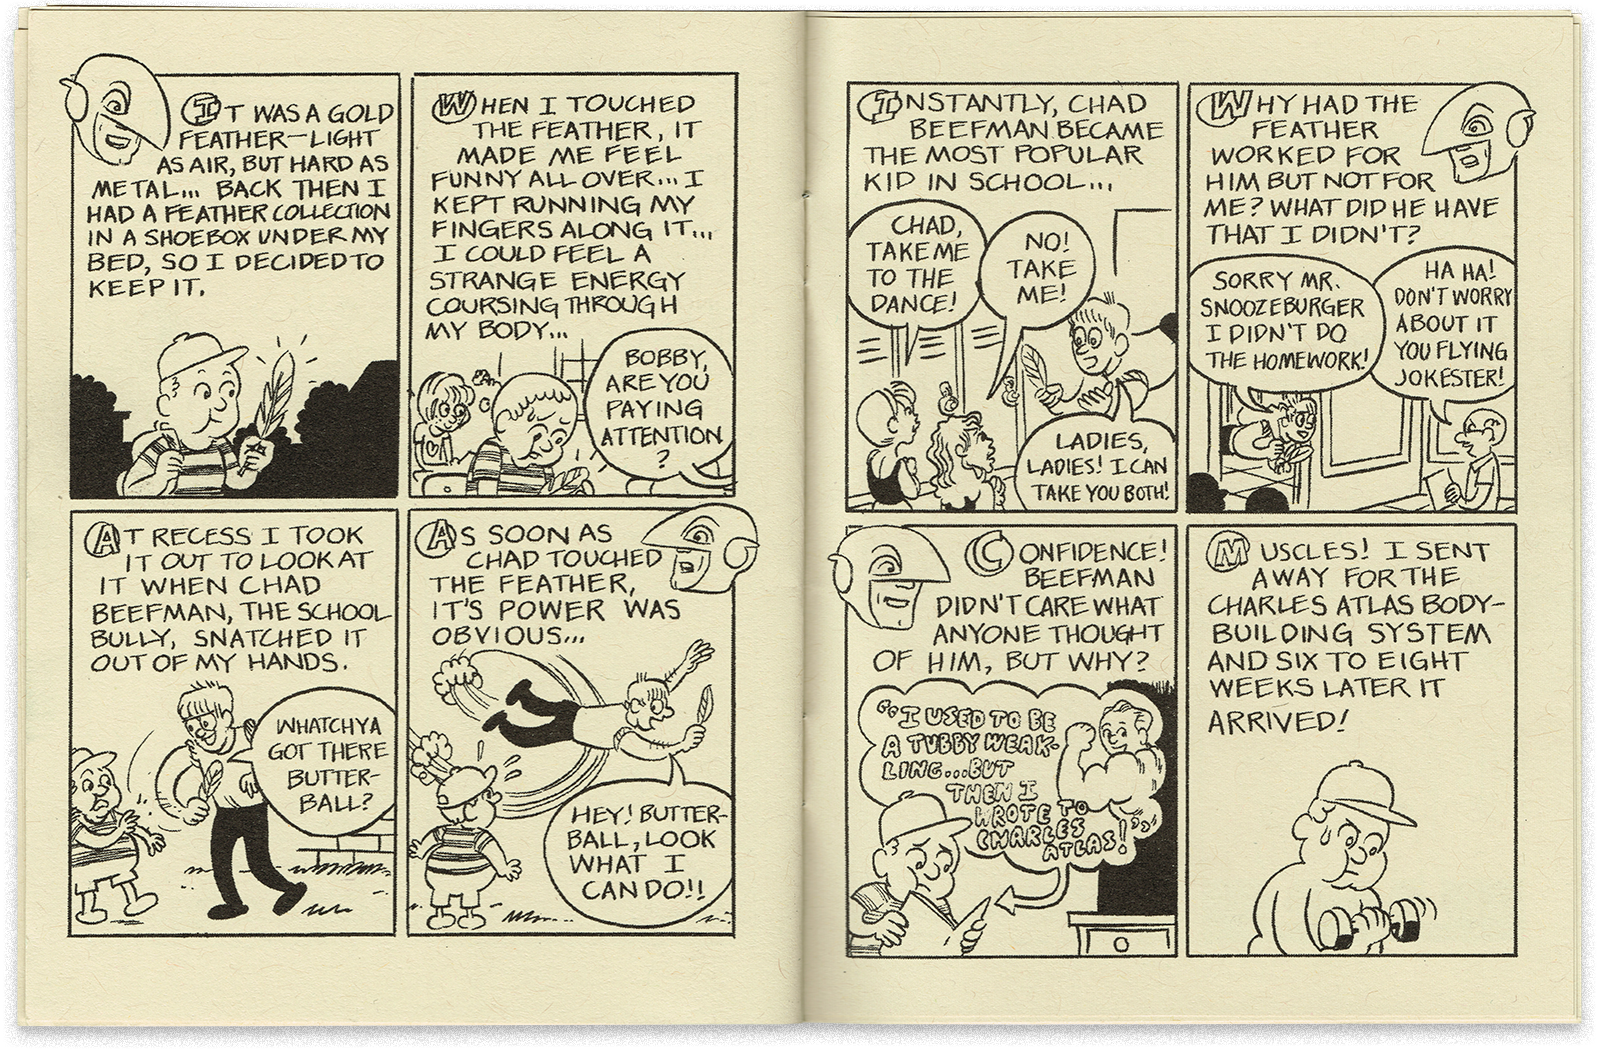 IT WAS A GOLD
FEATHER—LIGHT
AS AIR, BUT HARD AS
METAL... BACK THEN I
HAD A FEATHER COLLECTION
IN A SHOEBOX UNDER MY
BED, SO I DECIDED TO
KEEP IT.
WHEN I TOUCHED
THE FEATHER, IT
MADE ME FEEL
FUNNY ALL OVER... I
KEPT RUNNING MY
FINGERS ALONG IT...
I COULD FEEL A
STRANGE ENERGY
COURSING THROUGH
MY BODY...
BOBBY,
ARE YOU
PAYING
ATTENTION
?
AT RECESS I TOOK
IT OUT TO LOOK AT
IT WHEN CHAD
BEEFMAN, THE SCHOOL
BULLY, SNATCHED IT
OUT OF MY HANDS.
WHATCHYA
GOT THERE
BUTTER-
BALL?
AS SOON AS
CHAD TOUCHED
THE FEATHER,
IT'S POWER WAS
OBVIOUS...
HEY! BUTTER-
BALL, LOOK
WHAT I
CAN DO!!
INSTANTLY, CHAD
BEEFMAN BECAME
THE MOST POPULAR
KID IN SCHOOL...
CHAD,
TAKE ME
TO THE
DANCE!
NO!
TAKE
ME!
LADIES,
LADIES! I CAN
TAKE YOU BOTH!
WHY HAD THE
FEATHER
WORKED FOR
HIM BUT NOT FOR
ME? WHAT DID HE HAVE
THAT I DIDN'T?
SORRY MR.
SNOOZEBURGER
I DIDN'T DO
THE HOMEWORK!
HA HA!
DON'T WORRY
ABOUT IT
YOU FLYING
JOKESTER!
CONFIDENCE!
BEEFMAN
DIDN'T CARE WHAT
ANYONE THOUGHT
OF HIM, BUT WHY?
"I USED TO BE
A TUBBY WEAK-
LING...BUT
THEN I
WROTE TO
CHARLES
ATLAS!
MUSCLES! I SENT
AWAY FOR THE
CHARLES ATLAS BODY-
BUILDING SYSTEM
AND SIX TO EIGHT
WEEKS LATER IT
ARRIVED!